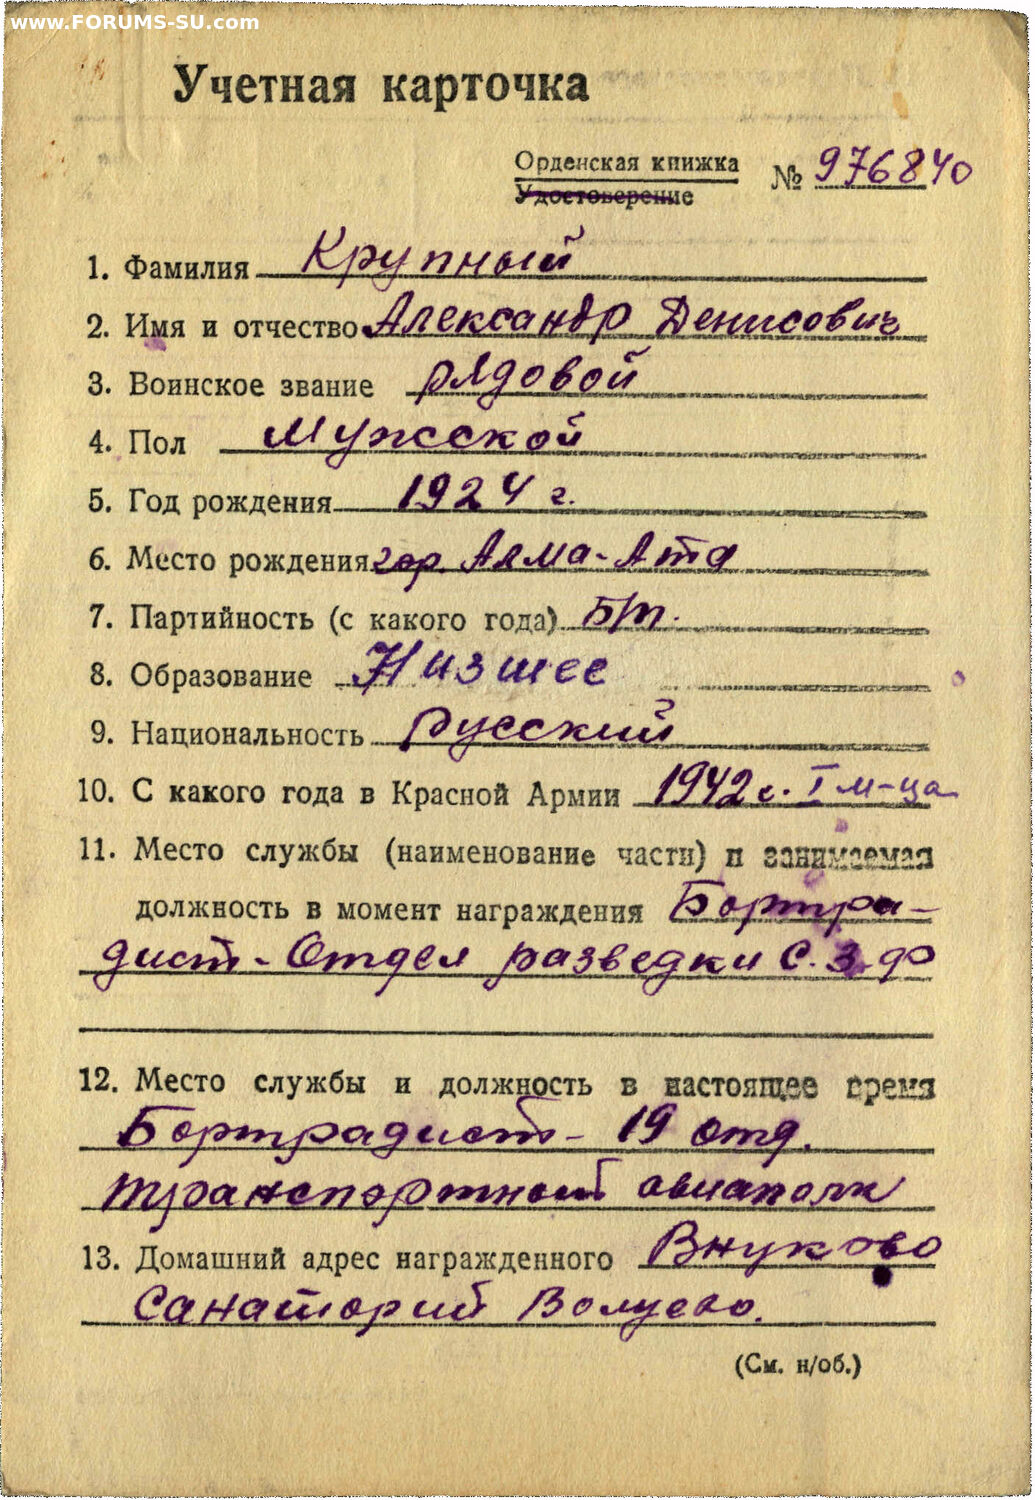 www.FORUMS-SU.com
Учетная карточка
Орденская книжка № 976840
Удостоверение
1. Фамилия Крупный
2. Имя и отчество Александр Денисович
3. Воинское звание рядовой
4. Пол Мужской
5. Год рождения 1924 г.
6. Место рождения гор. Алма-Ата
7. Партийность (с какого года) Б/п.
8. Образование Низшее
9. Национальность русский
10. С какого года в Красной Армии 1942 г. I м-ца
11. Место службы (наименование части) и занимаемая
должность в момент награждения Бортра-
дист - Отдел разведки С.З.Ф
12. Место службы и должность в настоящее время
Бортрадист - 19 отд.
транспортный авиаполк
13. Домашний адрес награжденного Внуково
Санаторий Валуево.
(См. н/об.)